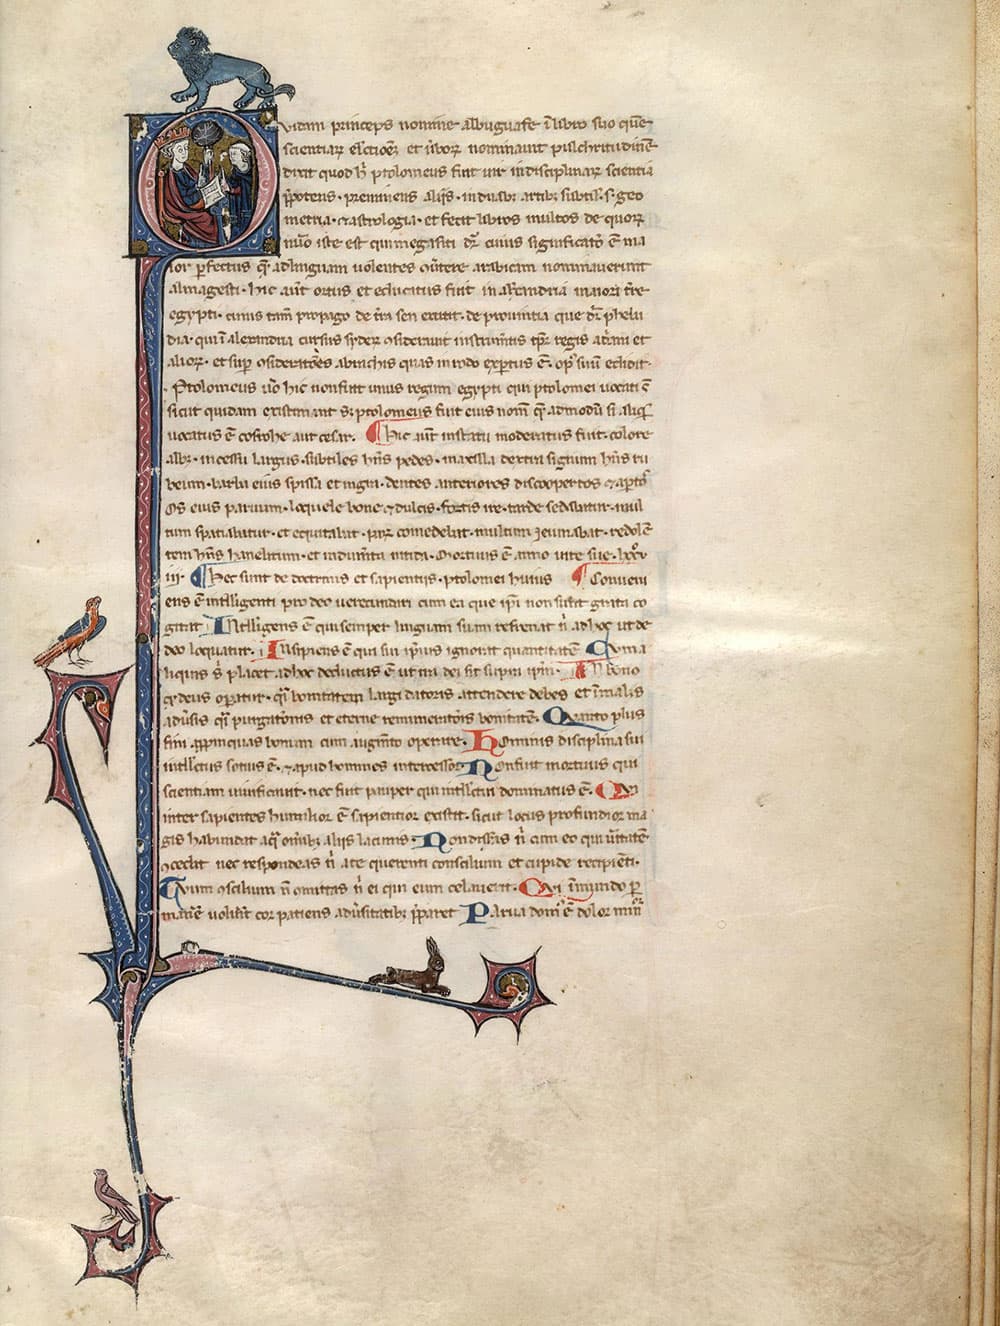 Quidam princeps nomine albuguafe ī libro suo quē
scientiarꝫ elctiōeꝫ et ūborꝫ nominauit pulchritudinē
dixit quod hͥ ptolomeus fuit uir in disciplinarꝫ scientia
p̄potens · preminens alijs · in duabꝫ artibꝫ subtilꝰ .s. geo
metria · ⁊ astrologia · et fecit libros multos de quorꝫ
nūo iste est qui megasiti dr̄ cuius significatō ē ma
ior perfectus q̄ꝫ ad linguam uolentes ꝯūtere arabicam nominauerunt
almagesti · hic aūt ortus et educatus fuit in alexandria maiori t̄re
egypti · cuius tam̄ propago de t̄ra sen extitit · de prouintia que dr̄ phelu
dia · qui ī alexandria cursus syderꝫ ꝯsiderauit instrum̄tis tꝑꝛe regis adriani et
aliorꝫ · et super ꝯsiderat̄oēs abrachis quas in rodo expertus ē · opꝰ suū edidit ·
Ptolomeus ūo hic non fuit unus regum egypti qui ptolomei uocati ē
sicut quidam existimant sꝫ ptolomeus fuit eius nom̄ q̄ admodū si aliqͥs
uocatus ē cosrohe aut cesar. Hic aūt in statu moderatus fuit · colore
albꝰ · incessu largus · subtiles hn̄s pedes · maxilla dextra signum hn̄s ru
beum · barba eius spissa et nigra · dentes anteriores discoopertos ⁊ aptōs
Os eius paruum · loquele bone ⁊ dulcis · fortis ire · tarde sedabatur · mul
tum spatiabatur · et equitabat · parꝫ comedebat · multum ieiunabat · redolē
tem hn̄s hanelitum · et indum̄ta nitida · Mortuus ē anno uite sue · lxxv
iij · Hec sunt de doctrinis et sapientijs · ptolomei huius Conueni
ens ē intelligenti pro deo uerecundari cum ea que ip̄i non sūt grata co
gitat Intelligens ē qui semper linguam suam refrenat n̄ ad hoc ut de
deo loquatur. Insipiens ē qui sui ipsius ignorat quantitatē Cum a
liquis sꝫ placet ad hoc deductus ē ut ira dei sit super ipm̄. In bono
q deus operatur · qͥ bonitatem largi datoris attendere debes et ī malis
adūsis qͥ purgat̄onis et eterne remunerat̄ois bonitatē. Quanto plus
fini appinquas bonum cum augm̄to operare. Hominis disciplina sui
intellc̄tus sotius ē · ⁊ apud homines intercessor Non fuit mortuus qui
scientiam uiuificauit · nec fuit pauper qui intellc̄tui dominatus ē. Qui
inter sapientes humilior ē sapientior existit · sicut locus profundior ma
gis habundat aqͣ om̄ibꝫ alijs lacunis · Non discas n̄ cum eo qui ūitatē
ꝯcedit nec respondeas n̄ a te querenti consilium et cupide recipiēti ·
Tuum ꝯsilium n̄ omittas n̄ ei qui eum celauerit · Qui ī mundo per
manē uolūit cor patiens adūsitatibꝫ p̄paret Parua domꝰ ē dolor minͦꝛ